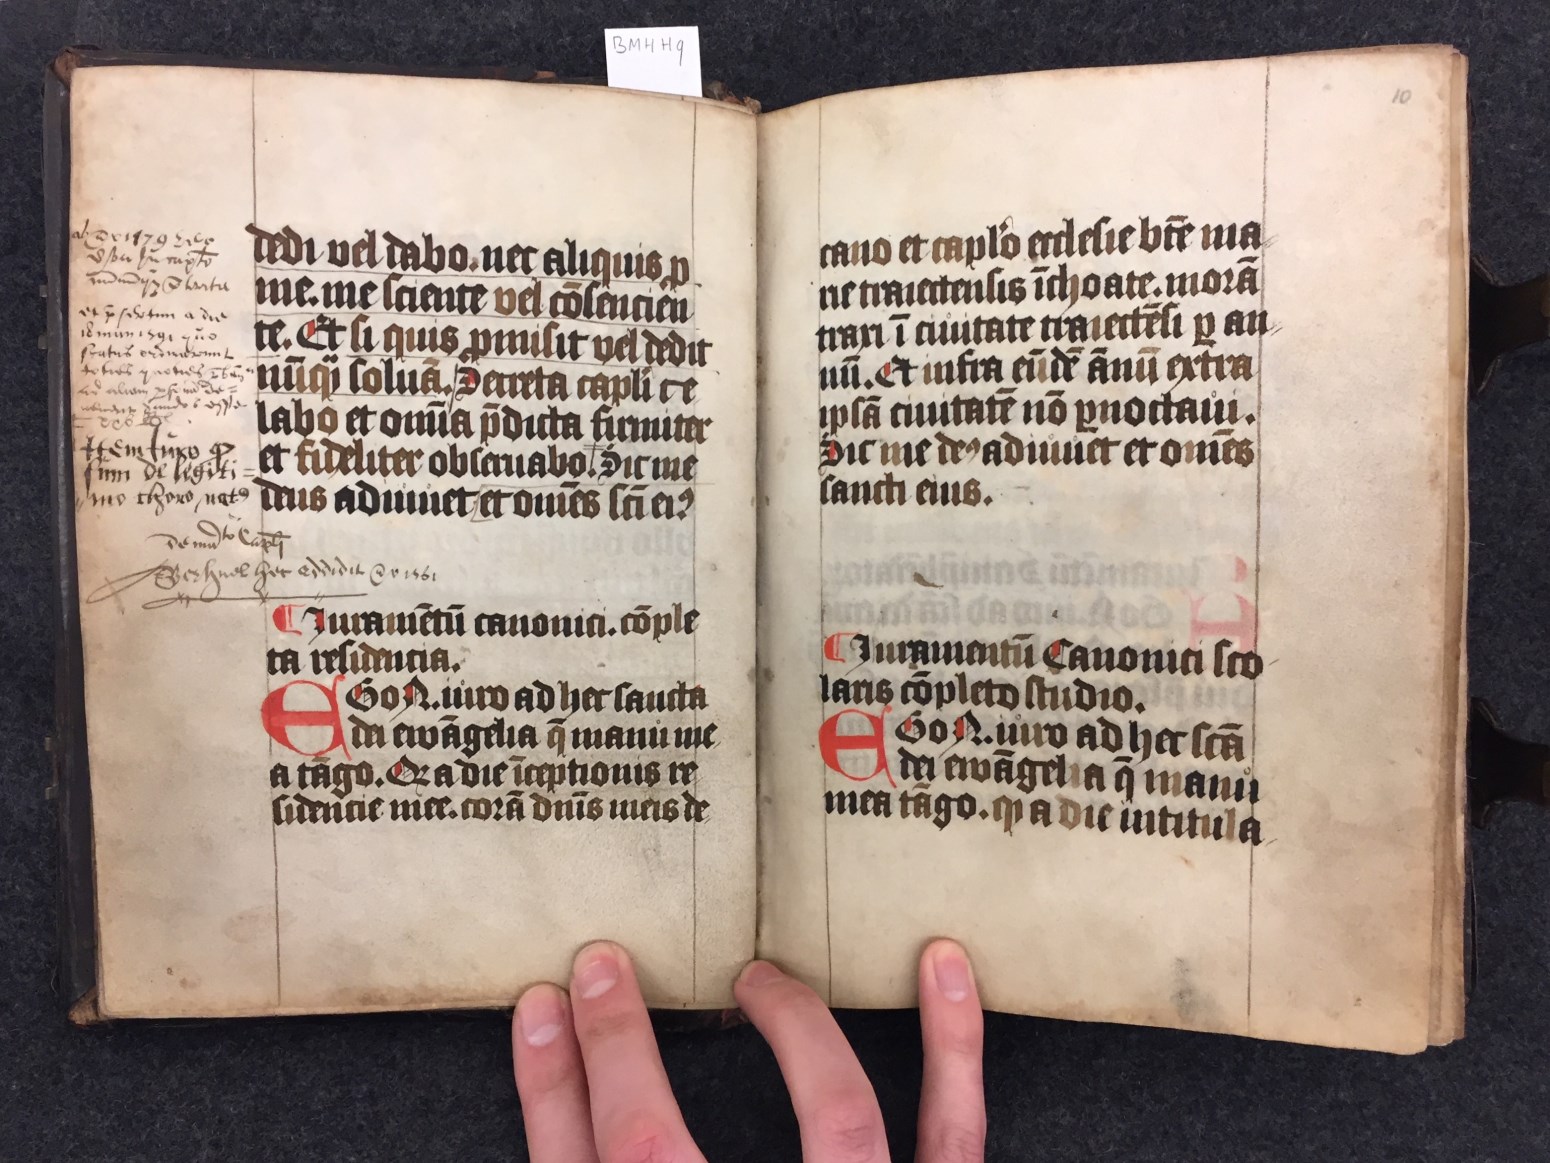 BMH H9
dedi vel dabo. nec aliquis p
me. me sciente vel cōsencien
te. Et si quis ꝓmisit vel dedit
nūqꝫ soluā. Decreta capl̄i ce
labo et om̄ia p̄dicta firmiter
et fideliter obseruabo. Sic me
deus adiuuet et om̄es sc̄i eiꝰ
Item Juro ꝙ
sum de legiti=
mo thoro natꝰ
de mādto Capli
hec addidit 1561
¶ Iuramētū canonici. cōple
ta residencia.
EGo N. iuro ad hec sancta
dei ewāgelia q̄ manu me
a tāgo. Qꝫ a die īceptionis re
sidencie mee. corā dn̄is meis de
10
cano et caplo ecclesie bt̄e ma
rie traiectensis īchoate. morā
traxi ī ciuitate traiectēsi ꝑ an
nū. Et infra eūdē ānū extra
ip̄sā ciuitatē nō ꝑnoctaui.
Sic me deꝰ adiuuet et om̄es
sancti eius.
¶ Iuramentū Canonici sco
laris cōpleto studio.
EGo N. iuro ad hec sc̄ā
dei ewāgelia q̄ manu
mea tāgo. qꝫ a die intitula